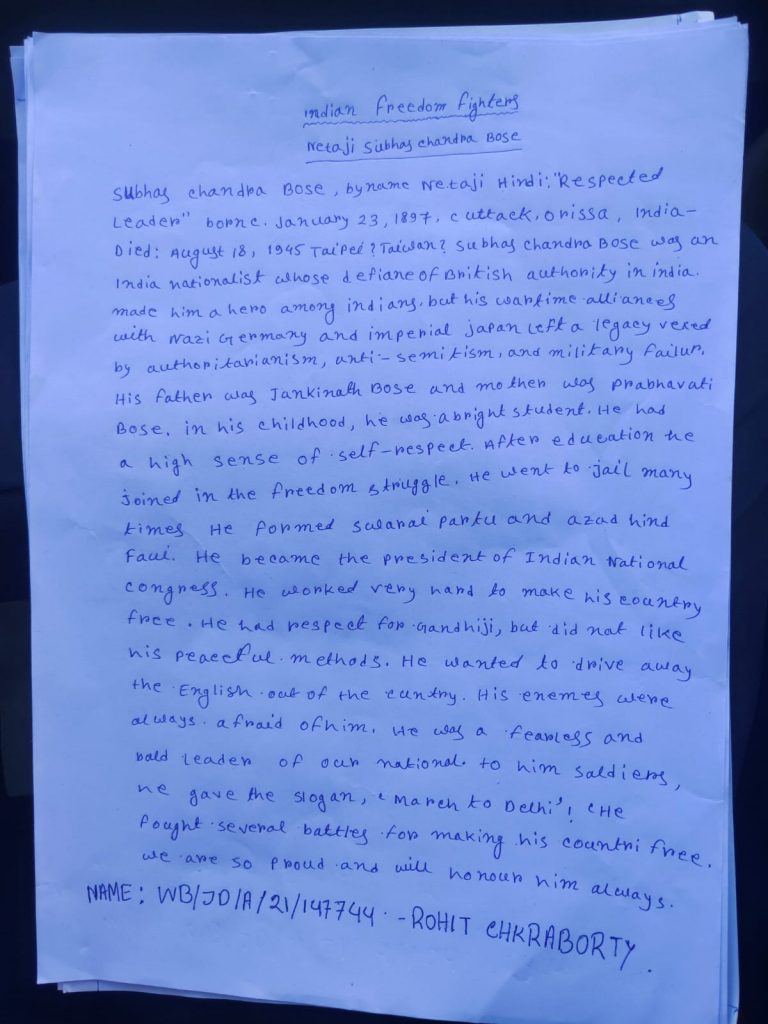 Indian freedom fighters
Netaji Subhas chandra Bose
Subhas chandra Bose, byname Netaji Hindi: "Respected
Leader" borne. January 23, 1897, cuttack, orissa, India-
Died: August 18, 1945 Taipei? Taiwan? Subhas chandra Bose was an
India nationalist whose defiane of British authority in india.
made him a hero among indians. but his wartime alliances
with Nazi Germany and imperial japan left a legacy vexed
by authoritarianism, anti-semitism, and military failur.
His father was Jankinath Bose and mother was Prabhavati
Bose. in his childhood, he was a bright student. He had
a high sense of self-respect. After education he
joined in the freedom struggle. He went to jail many
times He formed swarai partu and azad hind
Faui. He became the president of Indian National
congress. He worked very hard to make his country
free. He had respect for Gandhiji, but did not like
his peaceful methods. He wanted to drive away
the English out of the cuntry. His enemes were
always afraid of him. He was a fearless and
bald leader of our national. to him saldiers,
he gave the slogan, 'March to Delhi'! 'He
fought several battles for making his countri free.
we are so proud and will honour him always.
NAME: WB/JD/A/21/147744 - ROHIT CHKRABORTY.